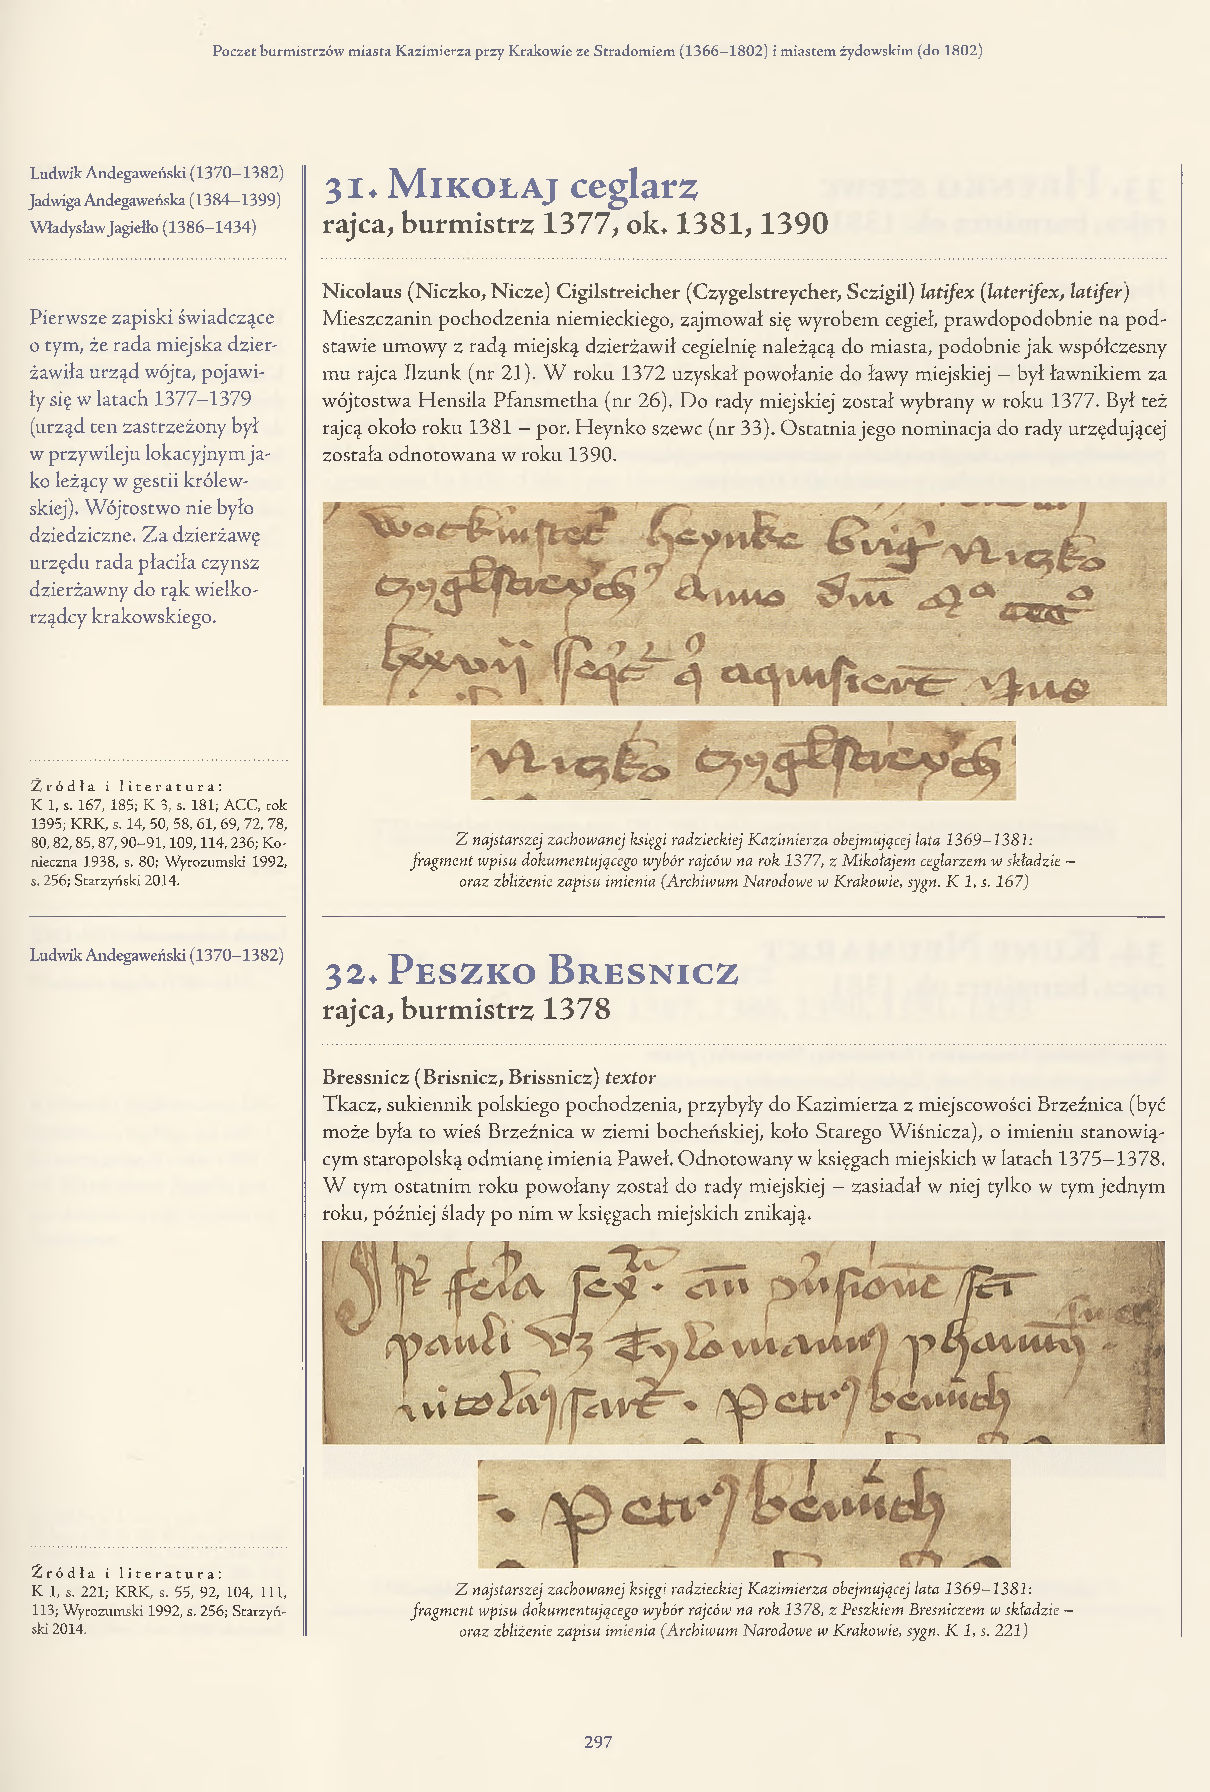 Poczet burmistrzów miasta Kazimierza przy Krakowie ze Stradomiem (1366–1802) i miastem żydowskim (do 1802)
Ludwik Andegaweński (1370–1382)
Jadwiga Andegaweńska (1384–1399)
Władysław Jagiełło (1386–1434)
Pierwsze zapiski świadczące
o tym, że rada miejska dzier-
żawiła urząd wójta, pojawi-
ły się w latach 1377–1379
(urząd ten zastrzeżony był
w przywileju lokacyjnym ja-
ko leżący w gestii królew-
skiej). Wójtostwo nie było
dziedziczne. Za dzierżawę
urzędu rada płaciła czynsz
dzierżawny do rąk wielko-
rządcy krakowskiego.
Źródła i literatura:
K 1, s. 167, 185; K 3, s. 181; ACC, rok
1395; KRK, s. 14, 50, 58, 61, 69, 72, 78,
80, 82, 85, 87, 90–91, 109, 114, 236; Ko-
nieczna 1938, s. 80; Wyrozumski 1992,
s. 256; Starzyński 2014.
31. Mikołaj ceglarz
rajca, burmistrz 1377, ok. 1381, 1390
Nicolaus (Niczko, Nicze) Cigilstreicher (Czygelstreycher, Sczigil) latifex (laterifex, latifer)
Mieszczanin pochodzenia niemieckiego, zajmował się wyrobem cegieł, prawdopodobnie na pod-
stawie umowy z radą miejską dzierżawił cegielnię należącą do miasta, podobnie jak współczesny
mu rajca Ilzunk (nr 21). W roku 1372 uzyskał powołanie do ławy miejskiej – był ławnikiem za
wójtostwa Hensila Pfansmetha (nr 26). Do rady miejskiej został wybrany w roku 1377. Był też
rajcą około roku 1381 – por. Heynko szewc (nr 33). Ostatnia jego nominacja do rady urzędującej
została odnotowana w roku 1390.
Z najstarszej zachowanej księgi radzieckiej Kazimierza obejmującej lata 1369–1381:
fragment wpisu dokumentującego wybór rajców na rok 1377, z Mikołajem ceglarzem w składzie –
oraz zbliżenie zapisu imienia (Archiwum Narodowe w Krakowie, sygn. K 1, s. 167)
Ludwik Andegaweński (1370–1382)
Źródła i literatura:
K 1, s. 221; KRK, s. 55, 92, 104, 111,
113; Wyrozumski 1992, s. 256; Starzyń-
ski 2014.
32. Peszko Bresnicz
rajca, burmistrz 1378
Bressnicz (Brisnicz, Brissnicz) textor
Tkacz, sukiennik polskiego pochodzenia, przybyły do Kazimierza z miejscowości Brzeźnica (być
może była to wieś Brzeźnica w ziemi bocheńskiej, koło Starego Wiśnicza), o imieniu stanowią-
cym staropolską odmianę imienia Paweł. Odnotowany w księgach miejskich w latach 1375–1378.
W tym ostatnim roku powołany został do rady miejskiej – zasiadał w niej tylko w tym jednym
roku, później ślady po nim w księgach miejskich znikają.
Z najstarszej zachowanej księgi radzieckiej Kazimierza obejmującej lata 1369–1381:
fragment wpisu dokumentującego wybór rajców na rok 1378, z Peszkiem Bresniczem w składzie –
oraz zbliżenie zapisu imienia (Archiwum Narodowe w Krakowie, sygn. K 1, s. 221)
297